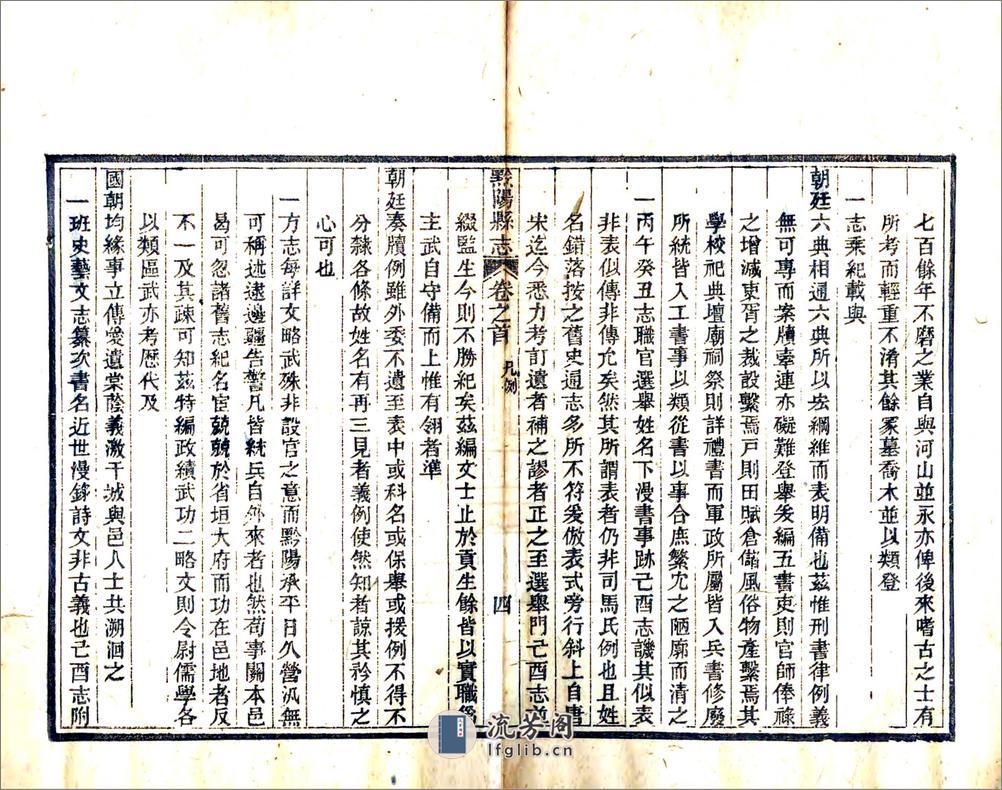 七百餘年不磨之業自與河山並永亦俾後來嗜古之士有
所考而輕重不淆其餘冢墓喬木並以類登
一志乘紀載與
朝廷六典相通六典所以宏綱維而表明備也茲惟刑書律例義
無可專而案牘牽連亦礙難登舉爰編五書吏則官師俸祿
之增減吏胥之裁設繫焉戶則田賦倉儲風俗物產繫焉其
學校祀典壇廟祠祭則詳禮書而軍政所屬皆入兵書修廢
所統皆入工書事以類從書以事合庶繁冗之陋廓而清之
一丙午癸丑志職官選舉姓名下漫書事跡己酉志譏其似表
非表似傳非傳允矣然其所謂表者仍非司馬氏例也且姓
名錯落按之舊史通志多所不符爰倣表式旁行斜上自唐
宋迄今悉力考訂遺者補之謬者正之至選舉門己酉志並
黔陽縣志
卷之首
凡例
四
綴監生今則不勝紀矣茲編文士止於貢生餘皆以實職為
主武自守備而上惟有翎者準
朝廷奏牘例雖外委不遺至表中或科名或保舉或援例不得不
分隸各條故姓名有再三見者義例使然知者諒其矜慎之
心可也
一方志每詳文略武殊非設官之意而黔陽承平日久營汛無
可稱述逮邊疆告警凡皆統兵自外來者也然苟事關本邑
曷可忽諸舊志紀名宦兢兢於省垣大府而功在邑地者反
不一及其疎可知茲特編政績武功二略文則令尉儒學各
以類區武亦考歷代及
國朝均緣事立傳愛遺棠蔭義激干城與邑人士共溯洄之
一班史藝文志纂次書名近世漫錄詩文非古義也己酉志附
流芳阁
lfglib.cn